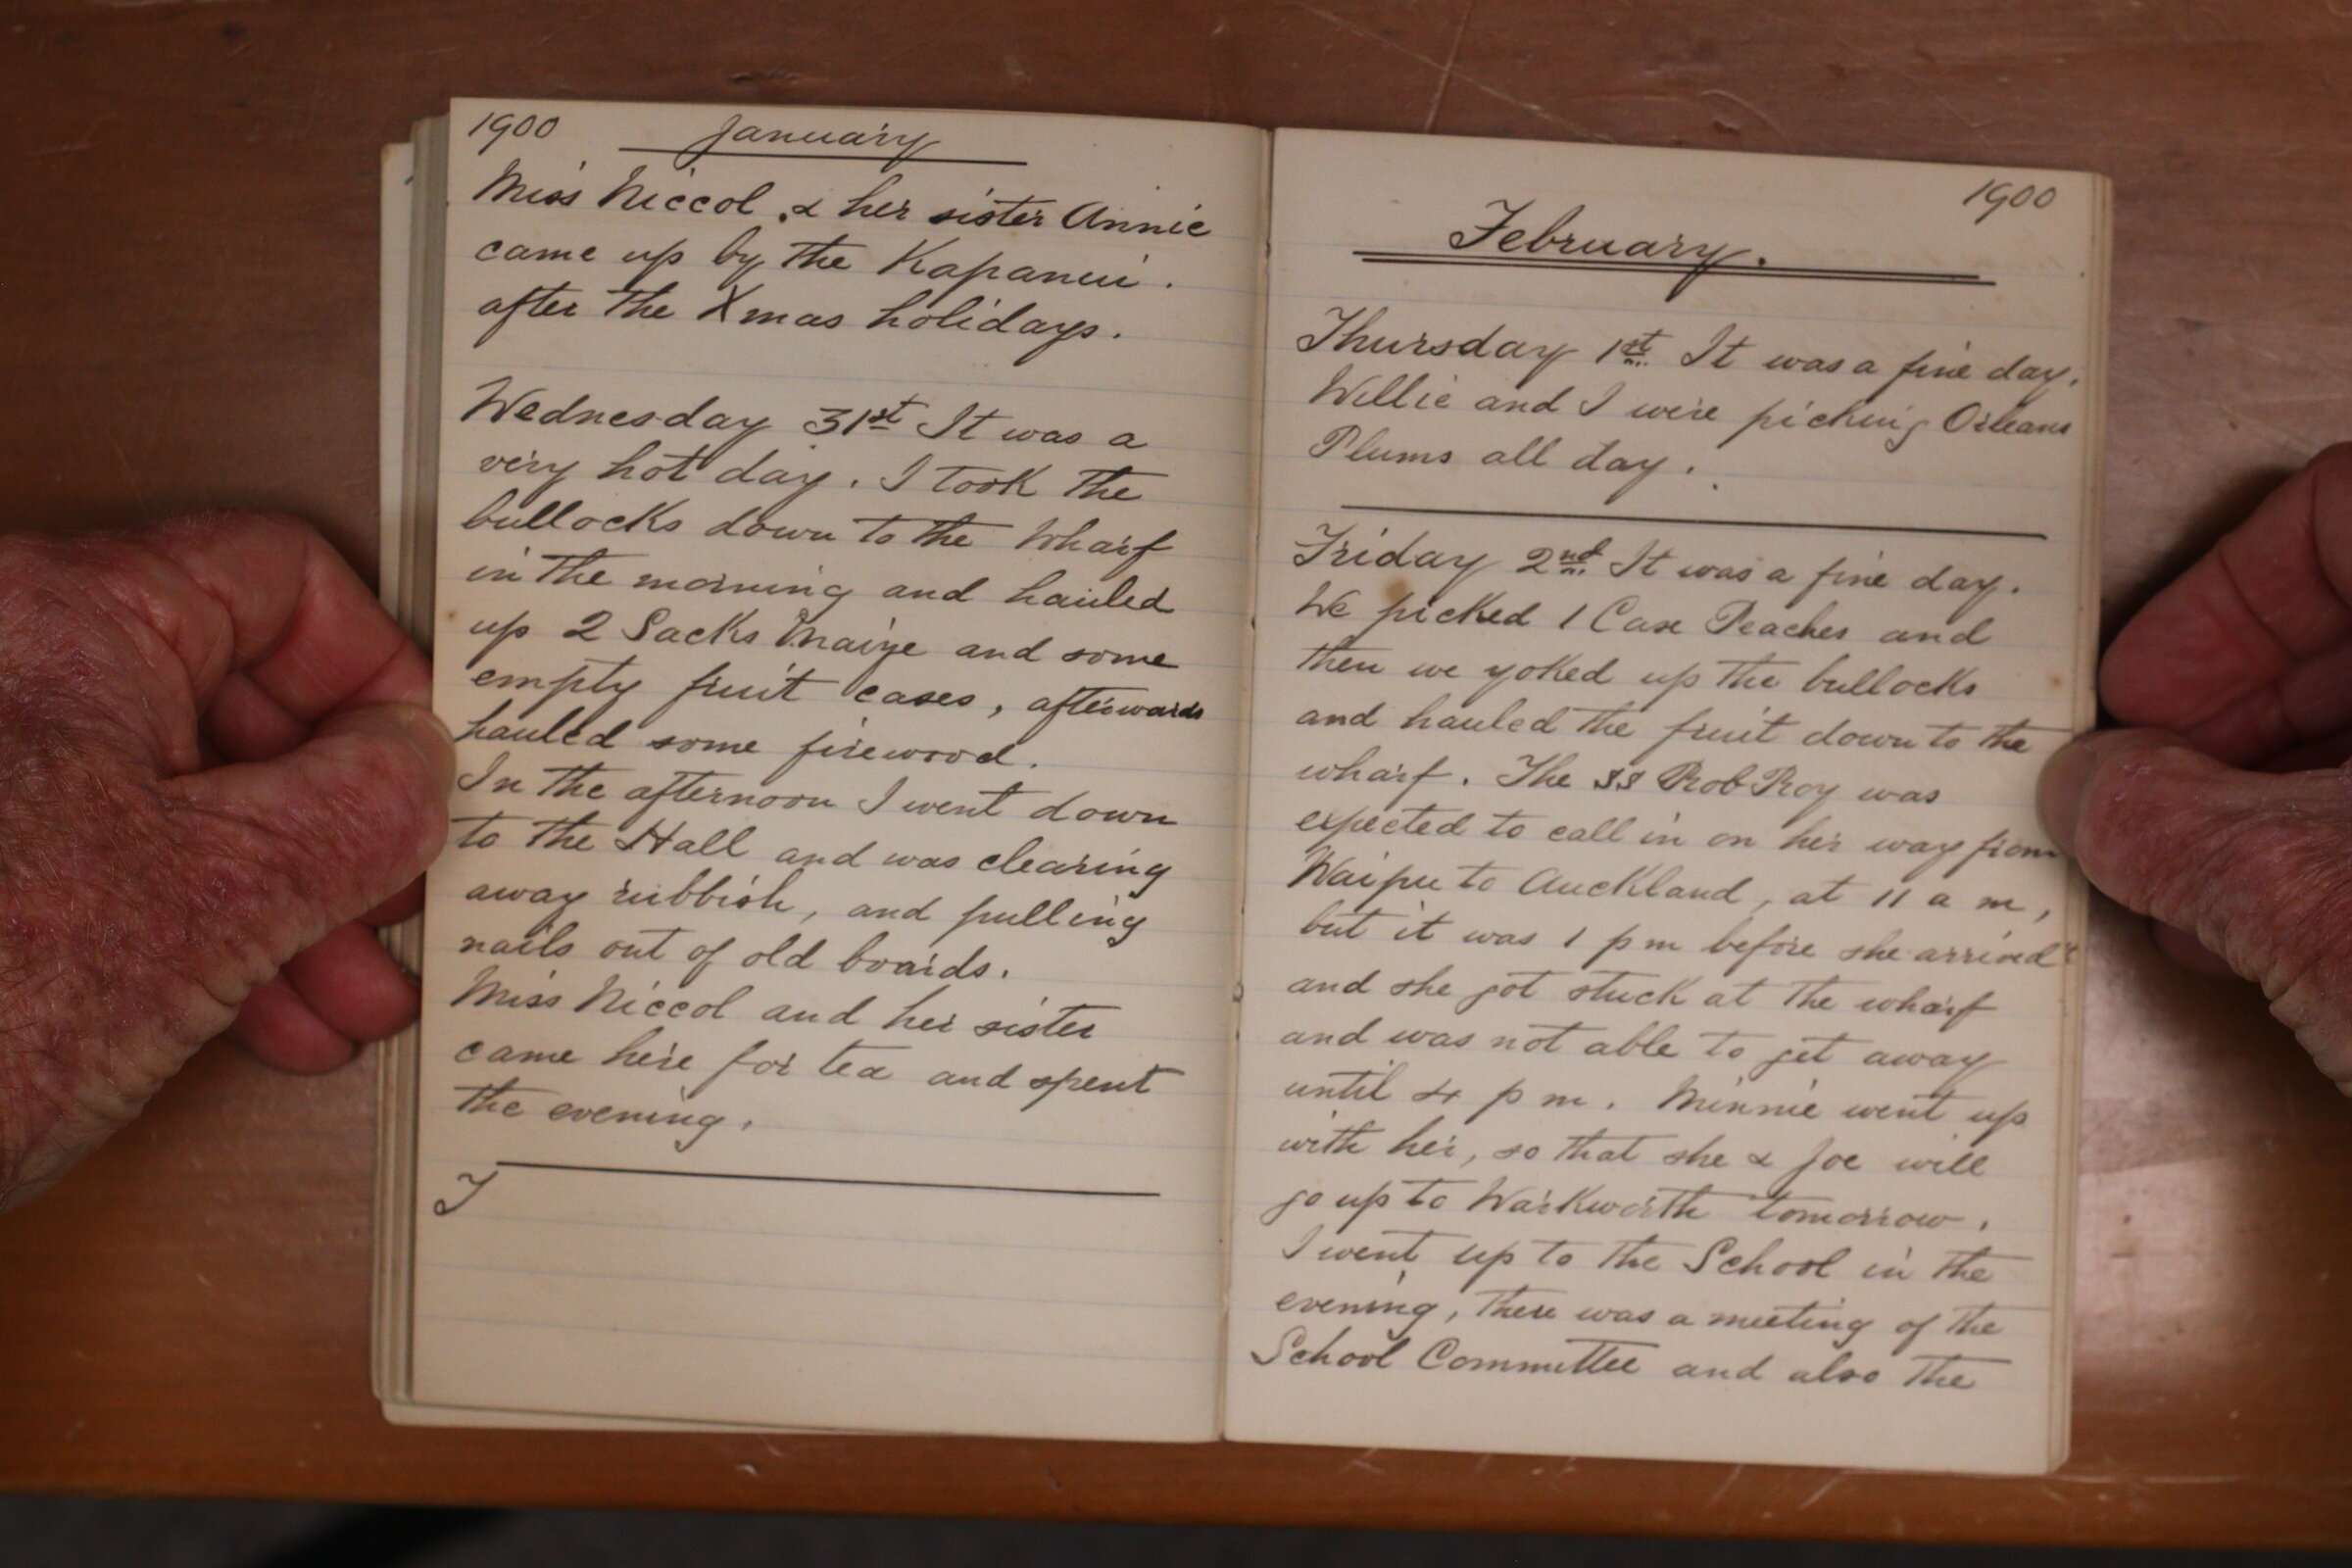 1900 January
Miss Niccol & her sister Annie
came up by the Kapanui.
after the Xmas holidays.
Wednesday 31st It was a
very hot day. I took the
bullocks down to the Wharf
in the morning and hauled
up 2 Sacks Maize and some
empty fruit cases, afterwards
hauled some firewood.
In the afternoon I went down
to the Hall and was clearing
away rubbish, and pulling
nails out of old boards.
Miss Niccol and her sister
came here for tea and spent
the evening.
T
1900
February.
Thursday 1st It was a fine day.
Willie and I were picking Orleans
Plums all day.
Friday 2nd It was a fine day.
We picked 1 Case Peaches and
then we yoked up the bullocks
and hauled the fruit down to the
wharf. The SS Rob Roy was
expected to call in on her way from
Waipu to Auckland, at 11 a m,
but it was 1 p m before she arrived
and she got stuck at the wharf
and was not able to get away
until 4 p m. Minnie went up
with her, so that she & Joe will
go up to Warkworth tomorrow.
I went up to the School in the
evening, there was a meeting of the
School Committee and also the